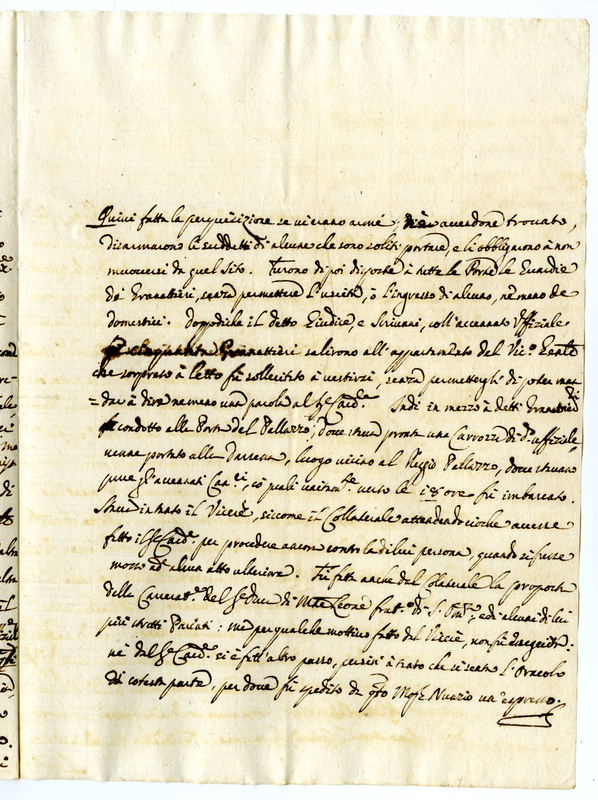 Quivi fatta la perquisizione se vi erano armi, avendone trovate,
disarmarono li suddetti di alcune che sono soliti portare, e li obbligarono à non
muoversi da quel sito. Furono di poi disposte à tutte le Porte le Guardie
de' Granattieri, senza permettere l'uscita, ò l'ingresso di alcuno, nemeno de
domestici. Doppo di che il detto Giudice, e Scrivani, coll'accennato Uffiziale
Granattieri salirono all'appartamento del Vic.o
che sorpreso à letto fù sollecitato à vestirsi, senza permettergli di poter man
=dar à dire nemeno una parola al Sr Card.e Indi in mezzo à detti Granattieri
fù condotto alla Porta del Pallazzo, dove stava pronta una Carrozza di d.o uffiziale,
venne portato alla Darsena, luogo vicino al Reggio Pallazzo, dove stavano
pure gl'accennati Can.ci, co' quali verso le 18 ore fù imbarcato.
Stava in tanto il Vicerè, siccome il Collaterale attendendo ciò che avesse
fatto il Sr Card.e per procedere ancora contro la di lui persona, quando si fusse
mosso ad alcun atto ulteriore. Fù fatta anche dal Collaterale la proposta
della Carcerat.e del Sr Duca di Monte Leone frat.o di S. Em.a, ed alcuni di lui
più stretti Parenti: mà per qualche mottivo fatto dal Vicerè, non fù eseguita:
nè dal Sr Card.e si è fatt'altro passo, persin à tanto che si senta l'Oracolo
di cotesta parte, per dove fù spedito da q.to Mons.r Nunzio un espresso.